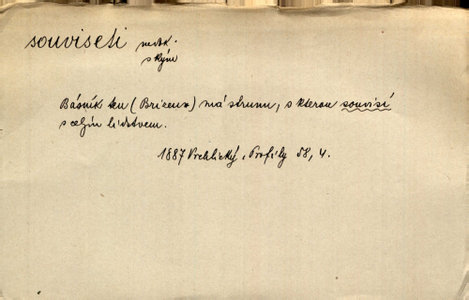 souviseti nedok.
s kým
Básník ten (Brizeux) má strunu, s kterou souvisí
s celým lidstvem.
1887 Vrchlický, Profily 58, 4.